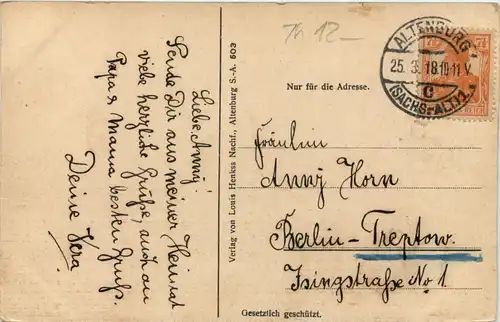 Th 12.—
Liebe Anny!
Sende Dir aus meiner Heimat
viele herzliche Grüße, auch an
Papa & Mama besten Gruß.
Deine Vera
Verlag von Louis Henkss Nachf., Altenburg S.-A. 503
ALTENBURG
25. 3. 18.10-11 V.
C
(SACHS.-ALTB.)
Nur für die Adresse.
Fräulein
Anny Horn
Berlin-Treptow.
Isingstraße No 1
Gesetzlich geschützt.